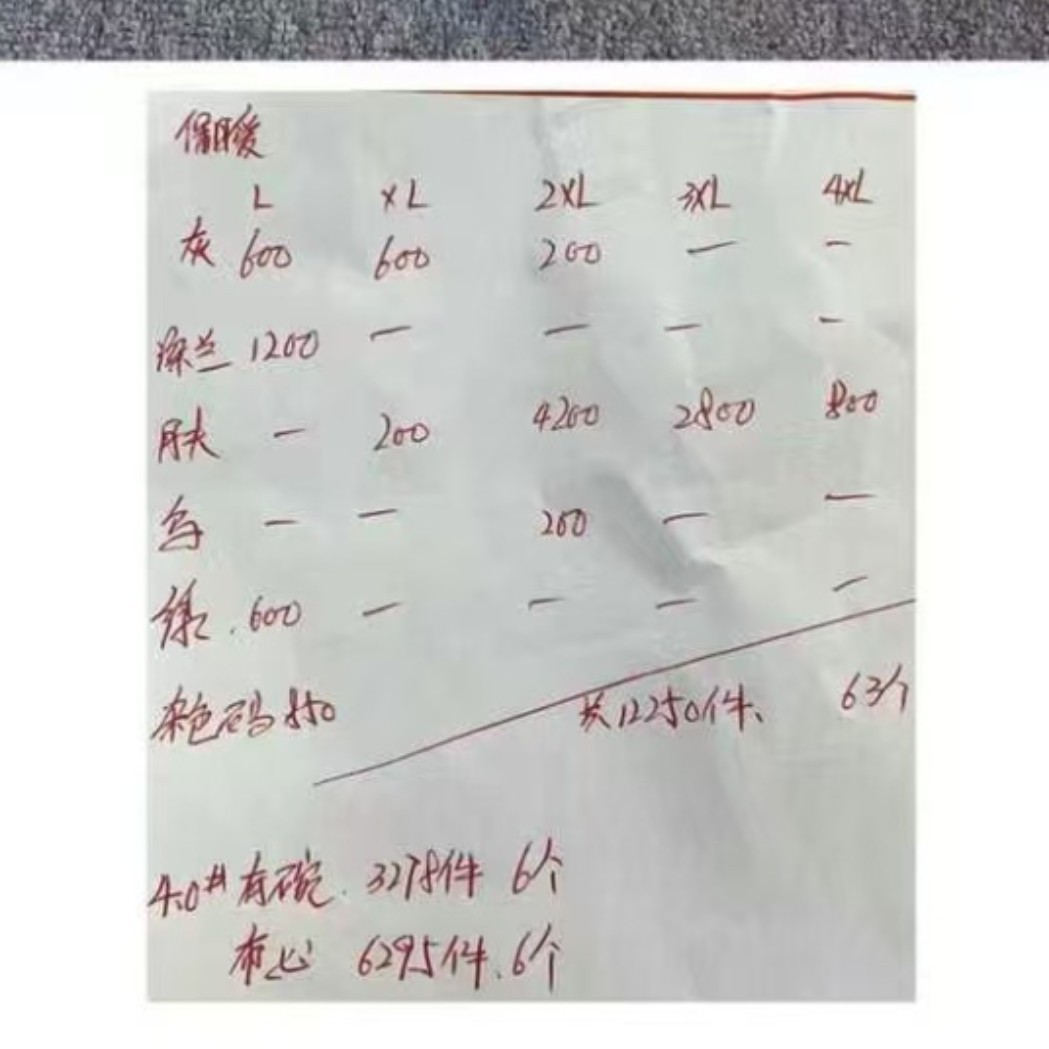 保暖
L XL 2XL 3XL 4XL
灰 600 600 200 — —
深兰 1200 — — — —
肤 — 200 4200 2800 800
— — 200 — —
绿. 600 — — — —
杂色码 850 共12250件、 63个
4.0# 有碗. 3278件 6个
布心 6295件. 6个